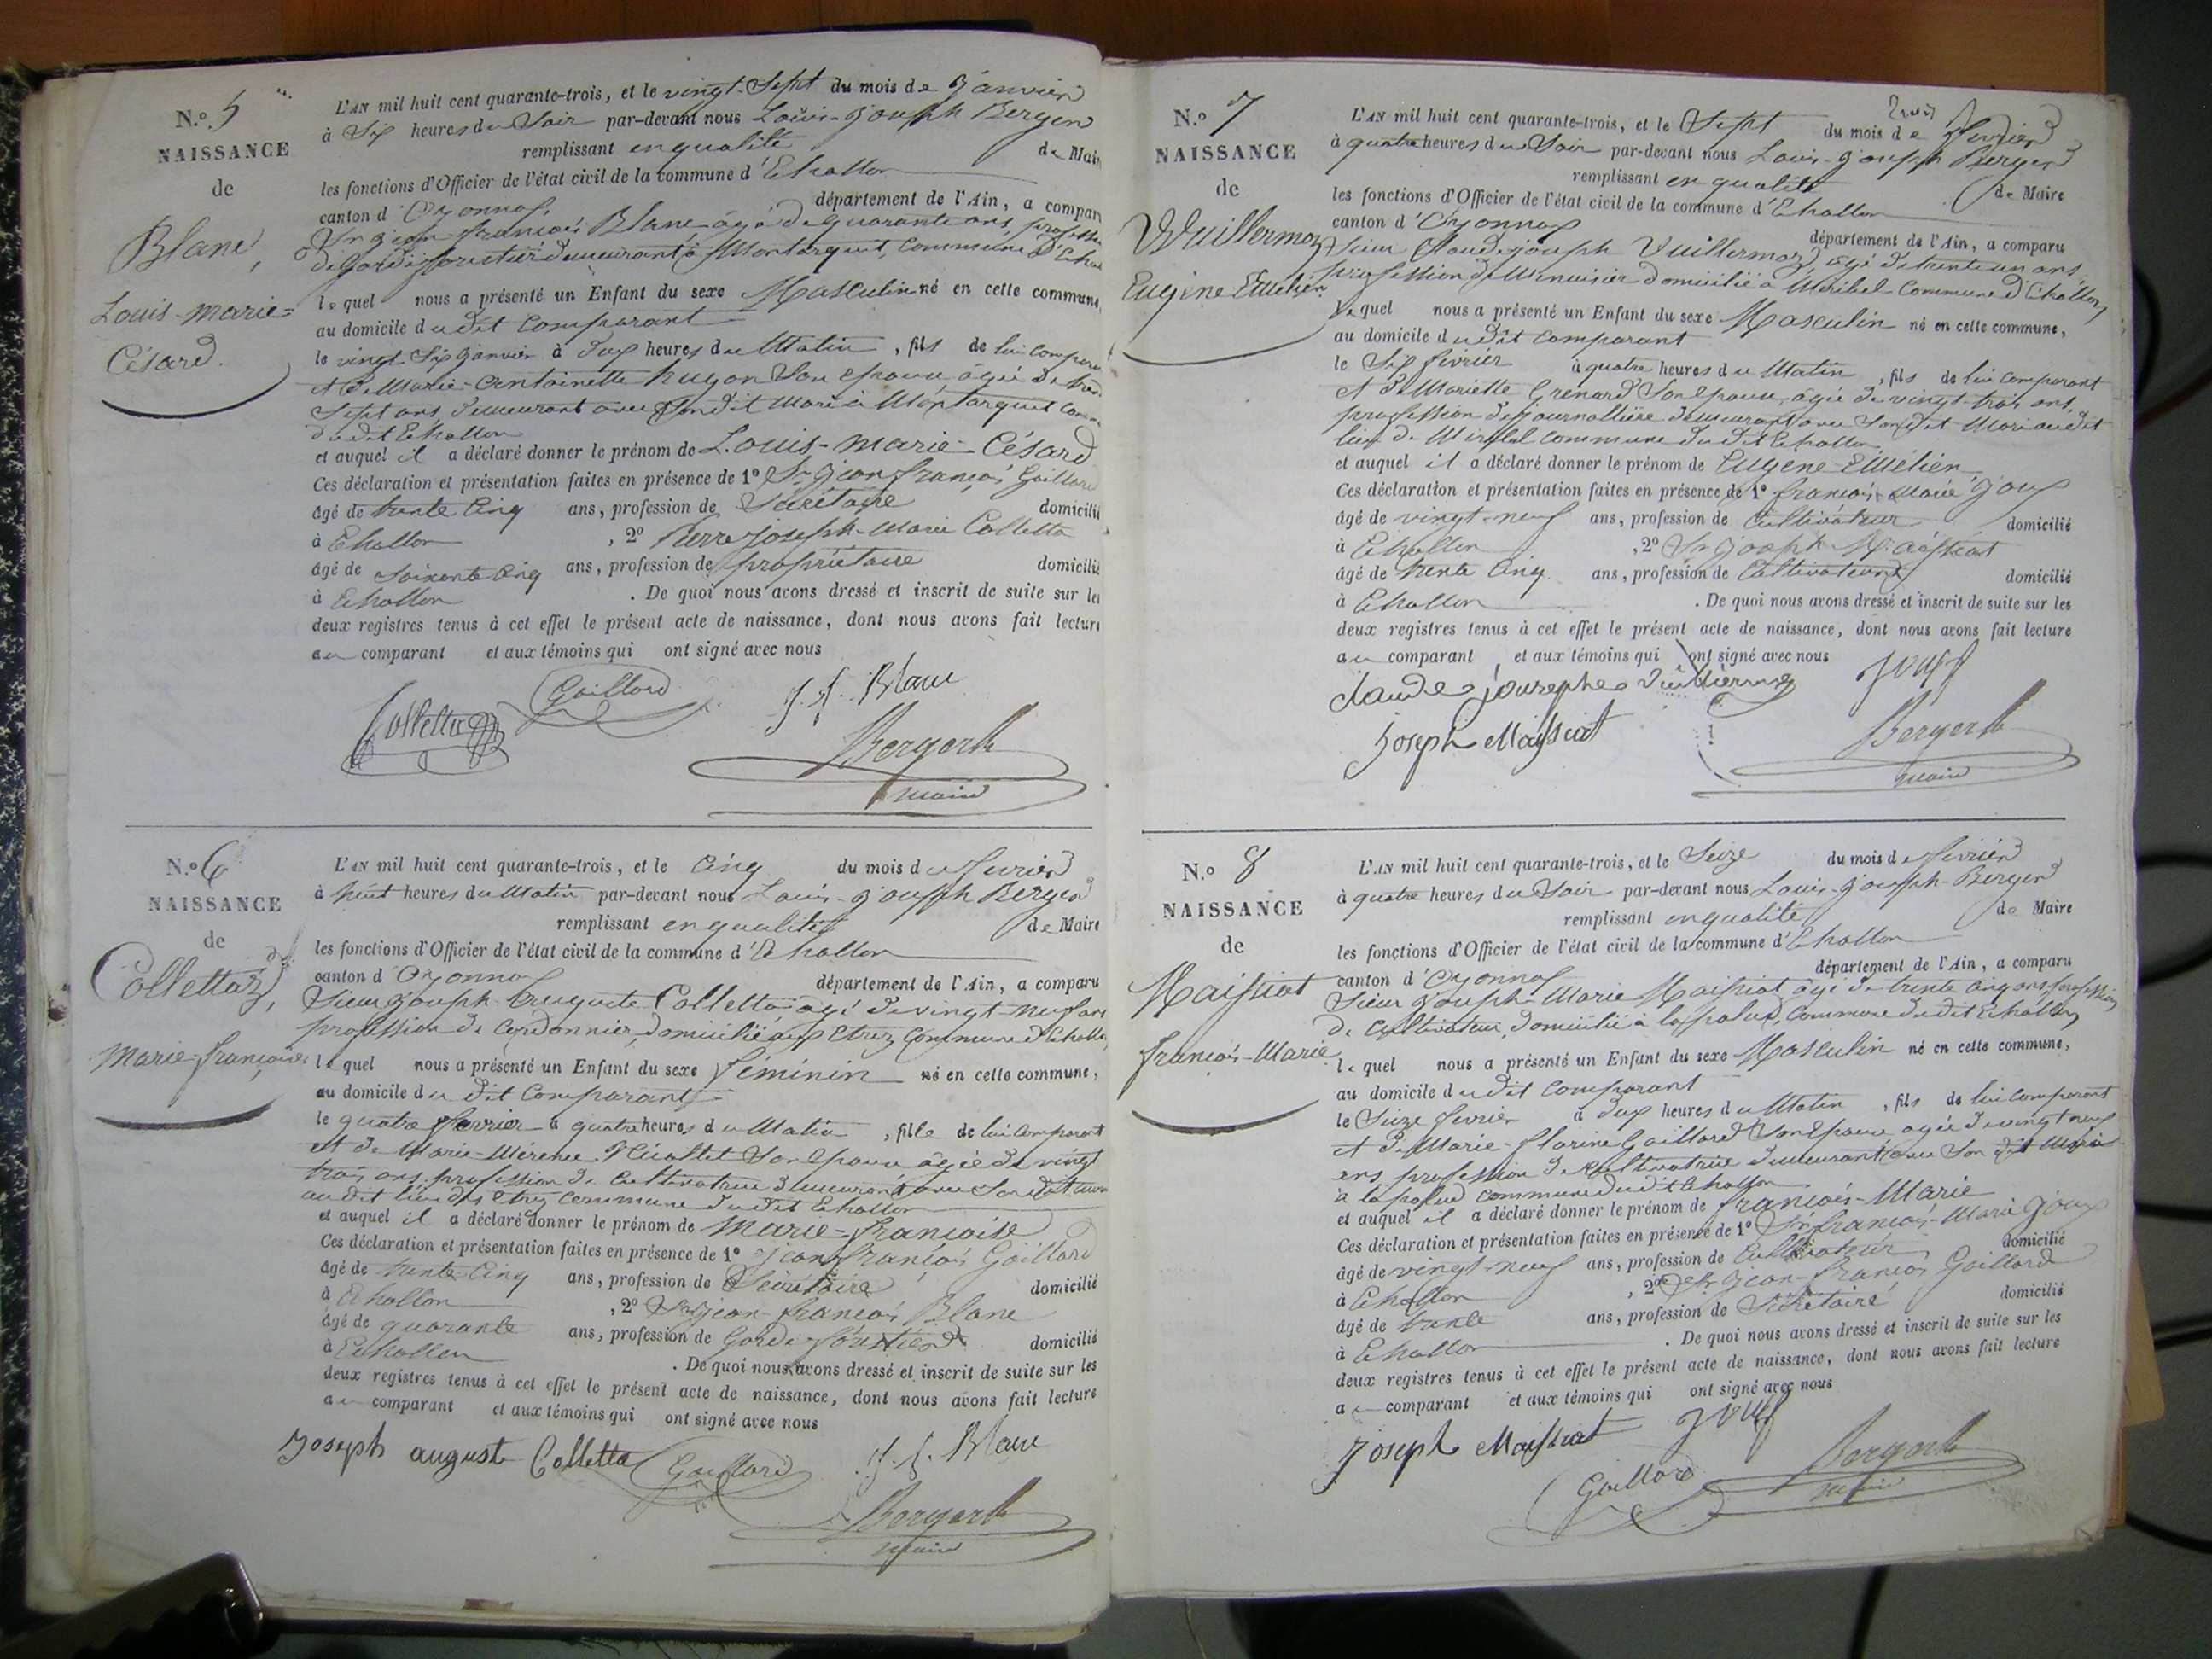 N.° 5
NAISSANCE
de
Blanc,
Louis-marie-
Césard.
L'AN mil huit cent quarante-trois, et le vingt-Sept du mois de Janvier
à Six heures du Soir par-devant nous Louis-Joseph Berger
remplissant en qualité de Mair
les fonctions d'Officier de l'état civil de la commune d'Echallon
canton d'Oyonnax, département de l'Ain, a compar
Sr jean françois Blanc âgé de quarante ans, profession
de Garde forestier demeurant à Montarquet, Commune d'Echal
le quel nous a présenté un Enfant du sexe Masculin né en cette commune,
au domicile dudit Comparant
le vingt Six janvier à deux heures du Matin, fils de lui Compara
et de Marie-Antoinette hugon Son épouse âgée de tren
Sept ans, demeurant avec Son dit Mari à Montarquet Com
dudit Echallon
et auquel il a déclaré donner le prénom de Louis-marie-Césard
Ces déclaration et présentation faites en présence de 1° Sr jean françois Gaillard
âgé de trente Cinq ans, profession de Secrétaire domicilié
à Echallon, 2° Pierre Joseph-Marie Colletta
âgé de Soixante Cinq ans, profession de propriétaire domicilié
à Echallon. De quoi nous avons dressé et inscrit de suite sur les
deux registres tenus à cet effet le présent acte de naissance, dont nous avons fait lecture
au comparant et aux témoins qui ont signé avec nous
Colletta Gaillard J. f. Blanc
Bergerh
maire
N.° 6
NAISSANCE
de
Collettaz,
Marie-françoise
L'AN mil huit cent quarante-trois, et le Cinq du mois de fevrier
à huit heures du Matin par-devant nous Louis-joseph Berger
remplissant en qualité de Maire
les fonctions d'Officier de l'état civil de la commune d'Echallon
canton d'Oyonnax département de l'Ain, a comparu
Sieur joseph-Auguste Colletta âgé de vingt-neuf ans
profession de Cordonnier, domicilié aux Etrez Commune d'Echallon,
le quel nous a présenté un Enfant du sexe féminin né en cette commune,
au domicile dudit Comparant
le quatre fevrier à quatre heures du Matin, fille de lui Comparant
et de Marie-Mérence Niallet Son épouse âgée de vingt
trois ans, profession de Cultivatrice demeurant avec Son dit mari
au dit lieu des Etrez Commune dudit Echallon
et auquel il a déclaré donner le prénom de Marie-françoise
Ces déclaration et présentation faites en présence de 1° jean françois Gaillard
âgé de trente-Cinq ans, profession de Secrétaire domicilié
à Echallon, 2° Sr jean-françois Blanc
âgé de quarante ans, profession de Garde forestier domicilié
à Echallon. De quoi nous avons dressé et inscrit de suite sur les
deux registres tenus à cet effet le présent acte de naissance, dont nous avons fait lecture
au comparant et aux témoins qui ont signé avec nous
Joseph auguste Colletta Gaillard J. f. Blanc
Bergerh
maire
N.° 7
NAISSANCE
de
Vuillermoz
Eugène Emelien
L'AN mil huit cent quarante-trois, et le Sept du mois de fevrier
à quatre heures du Soir par-devant nous Louis-joseph Berger
remplissant en qualité de Maire
les fonctions d'Officier de l'état civil de la commune d'Echallon
canton d'Oyonnax département de l'Ain, a comparu
Sieur Claude joseph Vuillermoz âgé de trente un ans
profession de Menuisier domicilié à Miribel Commune d'Echallon,
le quel nous a présenté un Enfant du sexe Masculin né en cette commune,
au domicile dudit Comparant
le Six fevrier à quatre heures du Matin, fils de lui Comparant
et de Mariette Grenard Son épouse, âgée de vingt-trois ans,
profession de journallière demeurant avec Son dit Mari audit
lieu de Miribel commune dudit Echallon
et auquel il a déclaré donner le prénom de Eugène-Emélien
Ces déclaration et présentation faites en présence de 1° françois-Marie Joux
âgé de vingt-neuf ans, profession de Cultivateur domicilié
à Echallon, 2° Sr joseph Maissiat
âgé de trente Cinq ans, profession de Cultivateur domicilié
à Echallon. De quoi nous avons dressé et inscrit de suite sur les
deux registres tenus à cet effet le présent acte de naissance, dont nous avons fait lecture
au comparant et aux témoins qui ont signé avec nous
claude jousephe Vuillermoz Joux
Joseph Maissiat Bergerh
maire
N.° 8
NAISSANCE
de
Maissiat
françois-Marie
L'AN mil huit cent quarante-trois, et le Seize du mois de fevrier
à quatre heures du Soir par-devant nous Louis-joseph-Berger
remplissant en qualité de Maire
les fonctions d'Officier de l'état civil de la commune d'Echallon
canton d'Oyonnax département de l'Ain, a comparu
Sieur joseph-Marie Maissiat âgé de trente Cinq ans, profession
de Cultivateur, domicilié à la palud, Commune dudit Echallon,
le quel nous a présenté un Enfant du sexe Masculin né en cette commune,
au domicile dudit Comparant
le Seize fevrier à deux heures du Matin, fils de lui Comparant
et de Marie-Florine Gaillard Son épouse âgée de vingt neuf
ans profession de Cultivatrice demeurant avec Son dit Mari
à la palud commune dudit Echallon
et auquel il a déclaré donner le prénom de françois-Marie
Ces déclaration et présentation faites en présence de 1° Sr françois-Marie Joux
âgé de vingt-neuf ans, profession de Cultivateur domicilié
à Echallon, 2° Sr jean-françois Gaillard
âgé de trente ans, profession de Secrétaire domicilié
à Echallon. De quoi nous avons dressé et inscrit de suite sur les
deux registres tenus à cet effet le présent acte de naissance, dont nous avons fait lecture
au comparant et aux témoins qui ont signé avec nous
Joseph Maissiat Joux
Gaillard Bergerh
maire